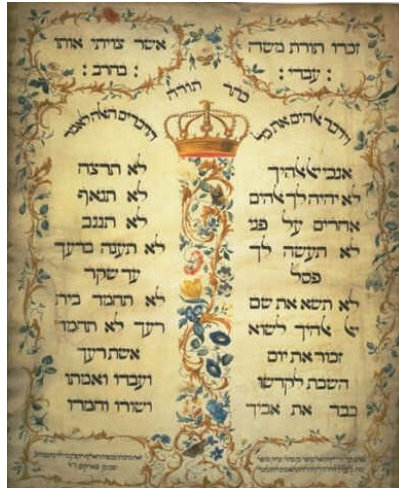 זכרו תורת משה
: עבדי :
אשר צויתי אותו
: בהרב :
כתר תורה
וידבר אלהים את כל
הדברים האלה לאמר
אנכי יי אלהיך
לא יהיה לך אלהים
אחרים על פני
לא תעשה לך
פסל
לא תשא את שם
יי אלהיך לשוא
זכור את יום
השבת לקדשו
כבד את אביך
לא תרצח
לא תנאף
לא תגנב
לא תענה ברעך
עד שקר
לא תחמד בית
רעך לא תחמד
אשת רעך
ועבדו ואמתו
ושורו וחמרו